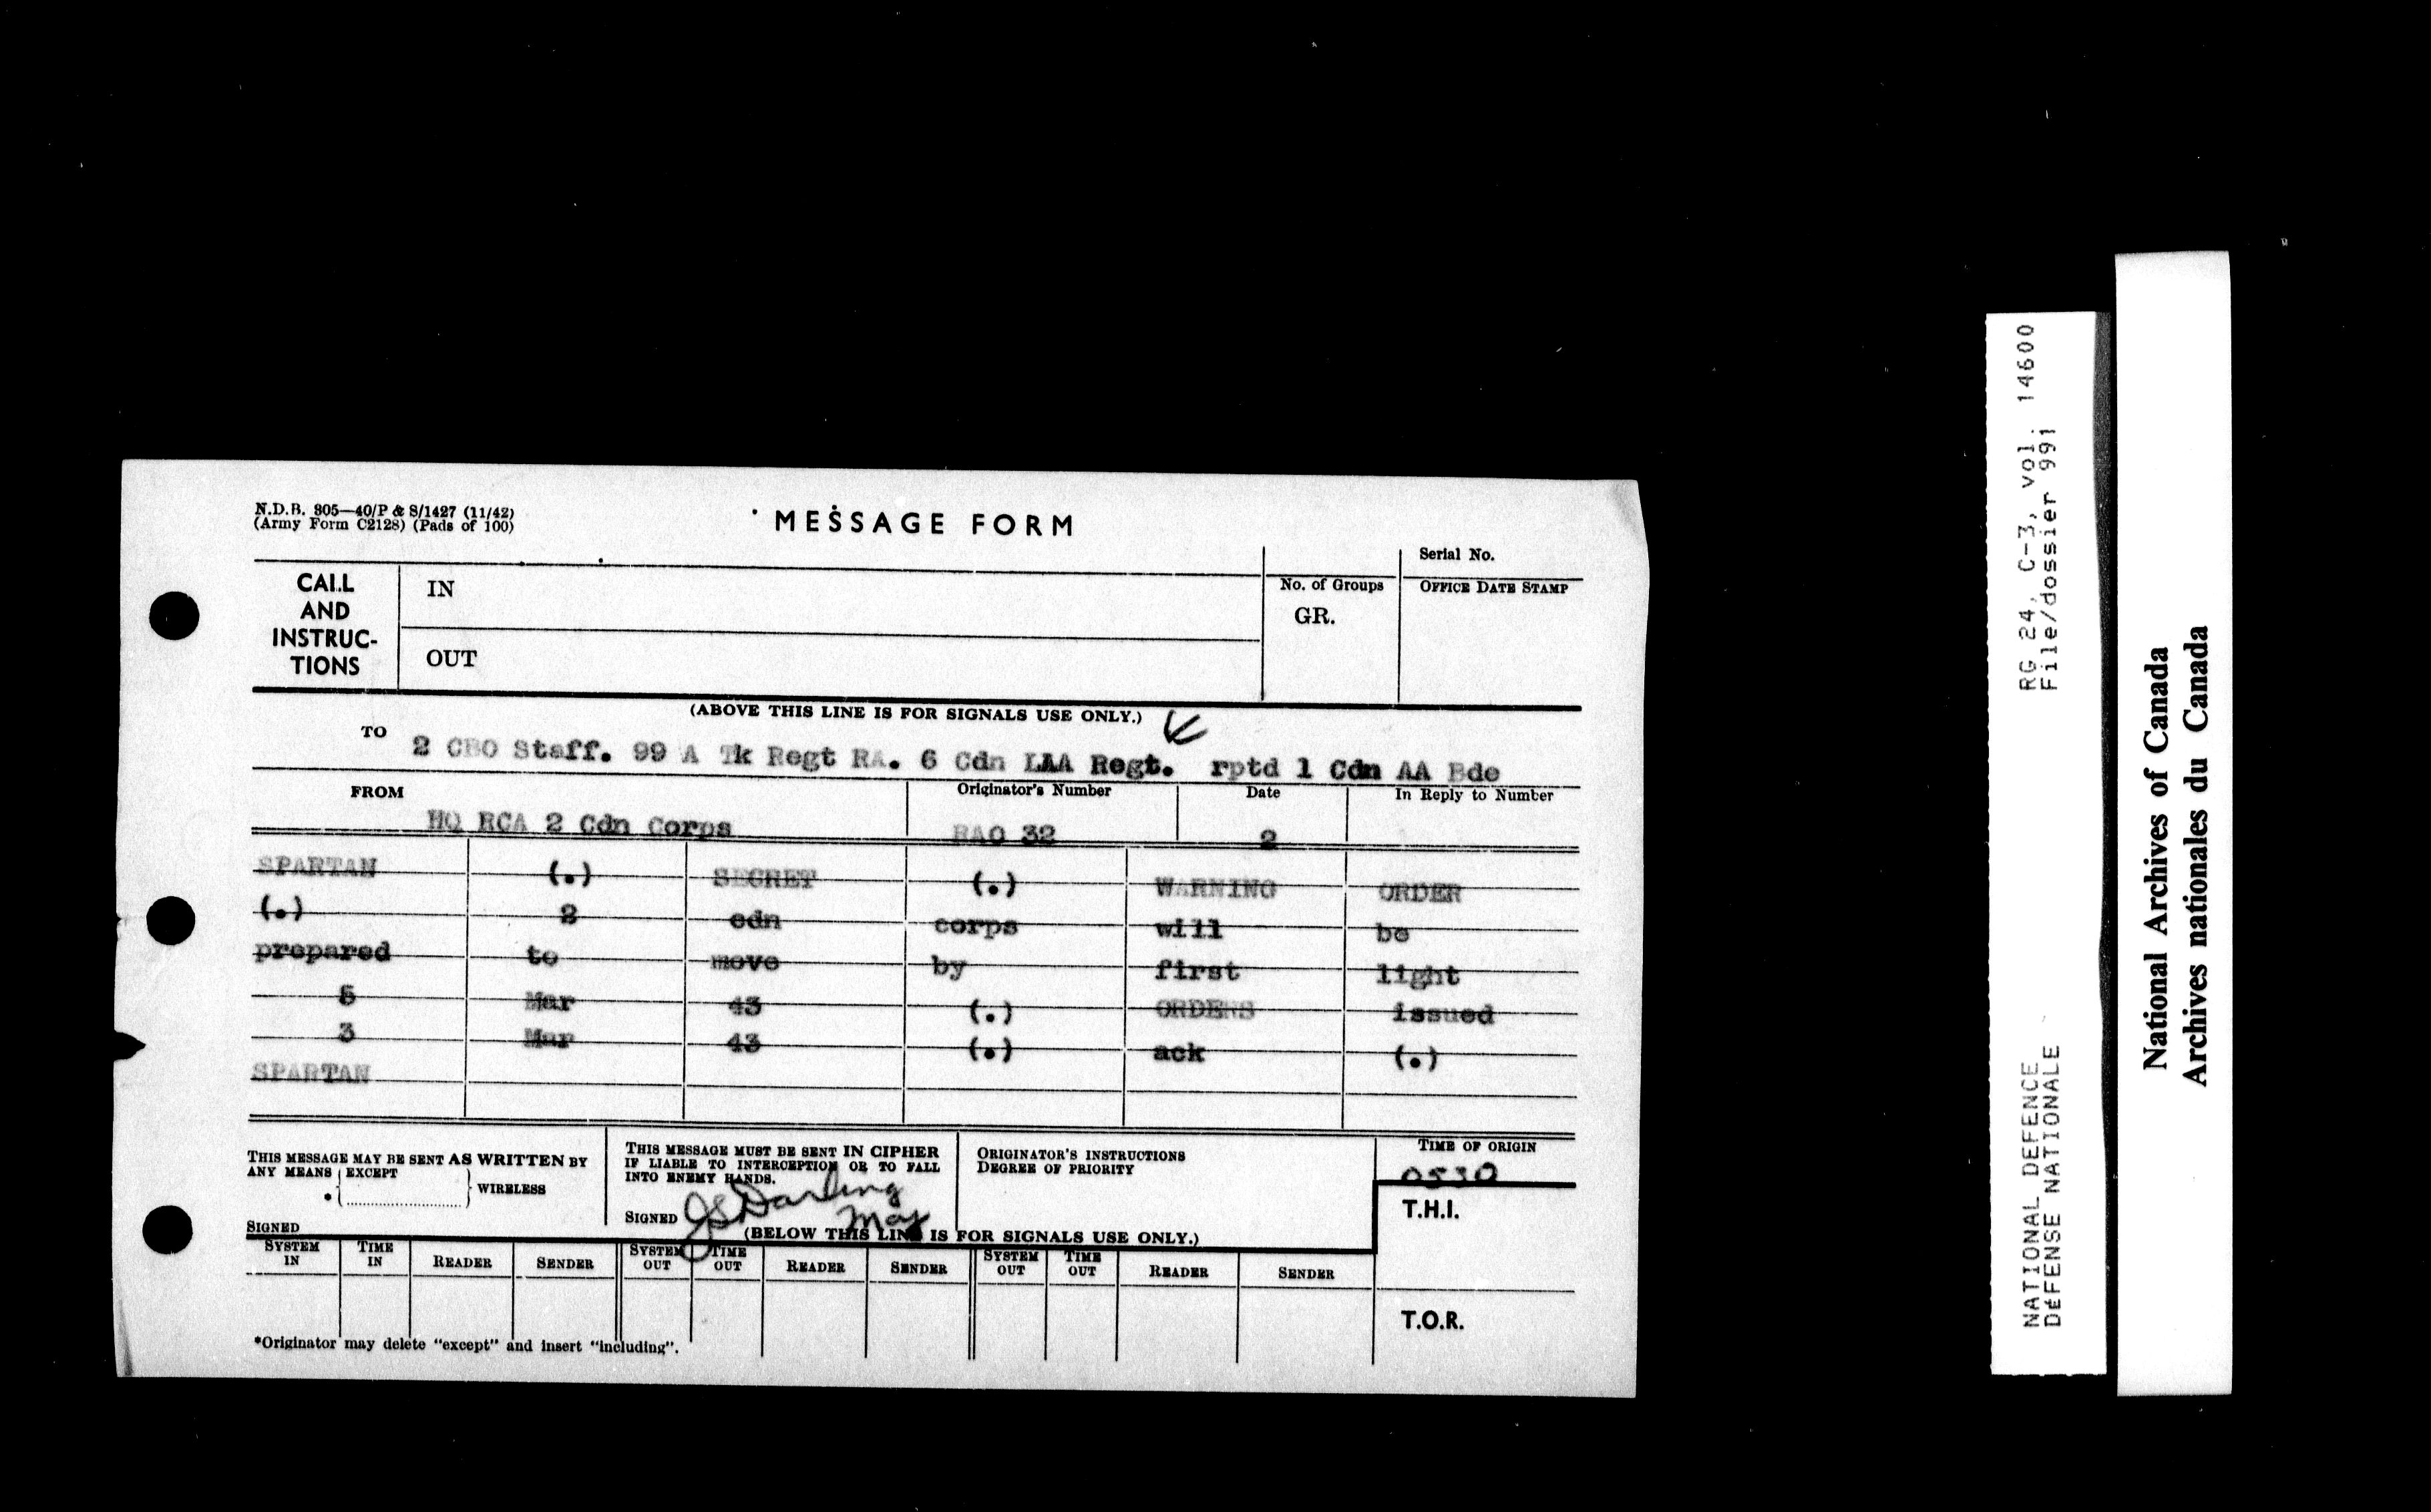 N.D.B. 805—40/P & S/1427 (11/42)
(Army Form C2128) (Pads of 100)
MESSAGE FORM
Serial No.
CALL AND INSTRUC-TIONS
IN
OUT
No. of Groups
GR.
OFFICE DATE STAMP
(ABOVE THIS LINE IS FOR SIGNALS USE ONLY.)
TO
2 CBO Staff. 99 A Tk Regt RA. 6 Cdn LAA Regt. rptd 1 Cdn AA Bde
FROM Originator's Number Date In Reply to Number
HQ RCA 2 Cdn Corps RAO 32 2
SPARTAN (.) SECRET (.) WARNING ORDER
(.) 2 cdn corps will be
prepared to move by first light
5 Mar 43 (.) ORDERS issued
3 Mar 43 (.) ack (.)
SPARTAN
THIS MESSAGE MAY BE SENT AS WRITTEN BY
ANY MEANS EXCEPT
* WIRELESS
SIGNED
THIS MESSAGE MUST BE SENT IN CIPHER
IF LIABLE TO INTERCEPTION OR TO FALL
INTO ENEMY HANDS.
SIGNED JS Darling
Maj
ORIGINATOR'S INSTRUCTIONS
DEGREE OF PRIORITY
TIME OF ORIGIN
0530
T.H.I.
(BELOW THIS LINE IS FOR SIGNALS USE ONLY.)
SYSTEM IN TIME IN READER SENDER SYSTEM OUT TIME OUT READER SENDER SYSTEM OUT TIME OUT READER SENDER
T.O.R.
*Originator may delete "except" and insert "including".
NATIONAL DEFENCE RG 24, C-3, vol. 14600
DéFENSE NATIONALE File/dossier 991
National Archives of Canada
Archives nationales du Canada